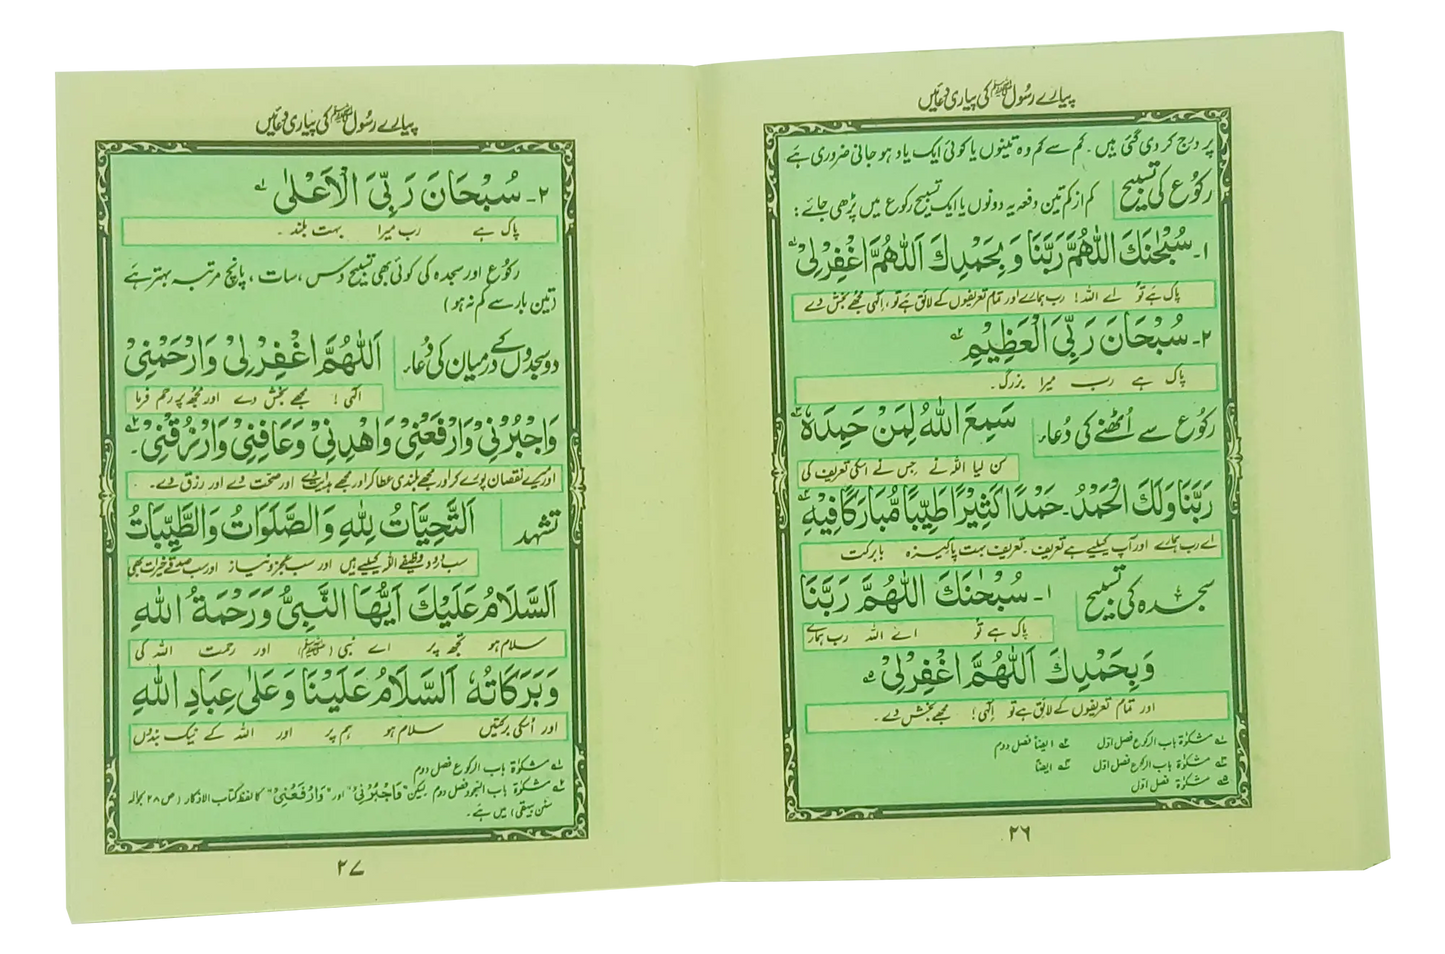 پیارے رسول ﷺ کی پیاری دعائیں
پر درج کر دی گئی ہیں۔ کم سے کم وہ تینوں یا کوئی ایک یاد ہو جانی ضروری ہے
رکوع کی تسبیح کم از کم تین دفعہ یہ دونوں یا ایک تسبیح رکوع میں پڑھی جائے:
۱۔ سُبْحٰنَكَ اللّٰهُمَّ رَبَّنَا وَ بِحَمْدِكَ اَللّٰهُمَّ اغْفِرْلِیْ ؂۱
پاک ہے تُو اے اللہ! رب ہمارے اور تمام تعریفوں کے لائق ہے تو، الٰہی مجھے بخش دے
۲۔ سُبْحَانَ رَبِّیَ الْعَظِیْمِ ؂۲
پاک ہے رب میرا بزرگ۔
رکوع سے اُٹھنے کی دُعاء سَمِعَ اللّٰهُ لِمَنْ حَمِدَهٗ ؂۳
سن لیا اللہ نے جس نے اسکی تعریف کی
رَبَّنَا وَلَكَ الْحَمْدُ۔ حَمْدًا كَثِیْرًا طَیِّبًا مُّبَارَكًا فِیْهِ ؂۴
اے رب ہمارے اور آپ کیلیے ہے تعریف۔ تعریف بہت پاکیزہ بابرکت
سجدہ کی تسبیح ۱۔ سُبْحٰنَكَ اللّٰهُمَّ رَبَّنَا
پاک ہے تو اے اللہ رب ہمارے
وَبِحَمْدِكَ اَللّٰهُمَّ اغْفِرْلِیْ ؂۵
اور تمام تعریفوں کے لائق ہے تو الٰہی! مجھے بخش دے۔
؂۱ مشکوٰۃ باب الرکوع فصل اوّل ؂۲ ایضاً فصل دوم
؂۳ مشکوٰۃ باب الرکوع فصل اوّل ؂۴ ایضاً
؂۵ مشکوٰۃ فصل اوّل
۲۶
پیارے رسول ﷺ کی پیاری دعائیں
۲۔ سُبْحَانَ رَبِّیَ الْاَعْلٰی ؂۱
پاک ہے رب میرا بہت بلند۔
رکوع اور سجدہ کی کوئی بھی تسبیح دس، سات، پانچ مرتبہ بہتر ہے
(تین بار سے کم نہ ہو)
دو سجدوں کے درمیان کی دُعاء اَللّٰهُمَّ اغْفِرْلِیْ وَارْحَمْنِیْ
الٰہی! مجھے بخش دے اور مجھ پر رحم فرما
وَاجْبُرْنِیْ وَارْفَعْنِیْ وَاهْدِنِیْ وَعَافِنِیْ وَارْزُقْنِیْ۔ ؂۲
اور میرے نقصان پورے کر اور مجھے بلندی عطا کر اور مجھے ہدایت دے اور صحت دے اور رزق دے۔
تشہد اَلتَّحِیَّاتُ لِلّٰهِ وَالصَّلَوَاتُ وَالطَّیِّبَاتُ
سب درود وظیفے اللہ کیلیے ہیں اور سب عجز و نیاز اور سب صدقے خیرات بھی
اَلسَّلَامُ عَلَیْكَ اَیُّهَا النَّبِیُّ وَرَحْمَةُ اللّٰهِ
سلام ہو تجھ پر اے نبی (ﷺ) اور رحمت اللہ کی
وَبَرَكَاتُهٗ اَلسَّلَامُ عَلَیْنَا وَعَلٰی عِبَادِ اللّٰهِ
اور اُسکی برکتیں سلام ہو ہم پر اور اللہ کے نیک بندوں
؂۱ مشکوٰۃ باب الرکوع فصل دوم
؂۲ مشکوٰۃ باب السجود فصل دوم لیکن "وَاجْبُرْنِیْ" اور "وَارْفَعْنِیْ" کا لفظ کتاب الاذکار (ص ۲۸ بحوالہ
سنن بیہقی) میں ہے۔
۲۷